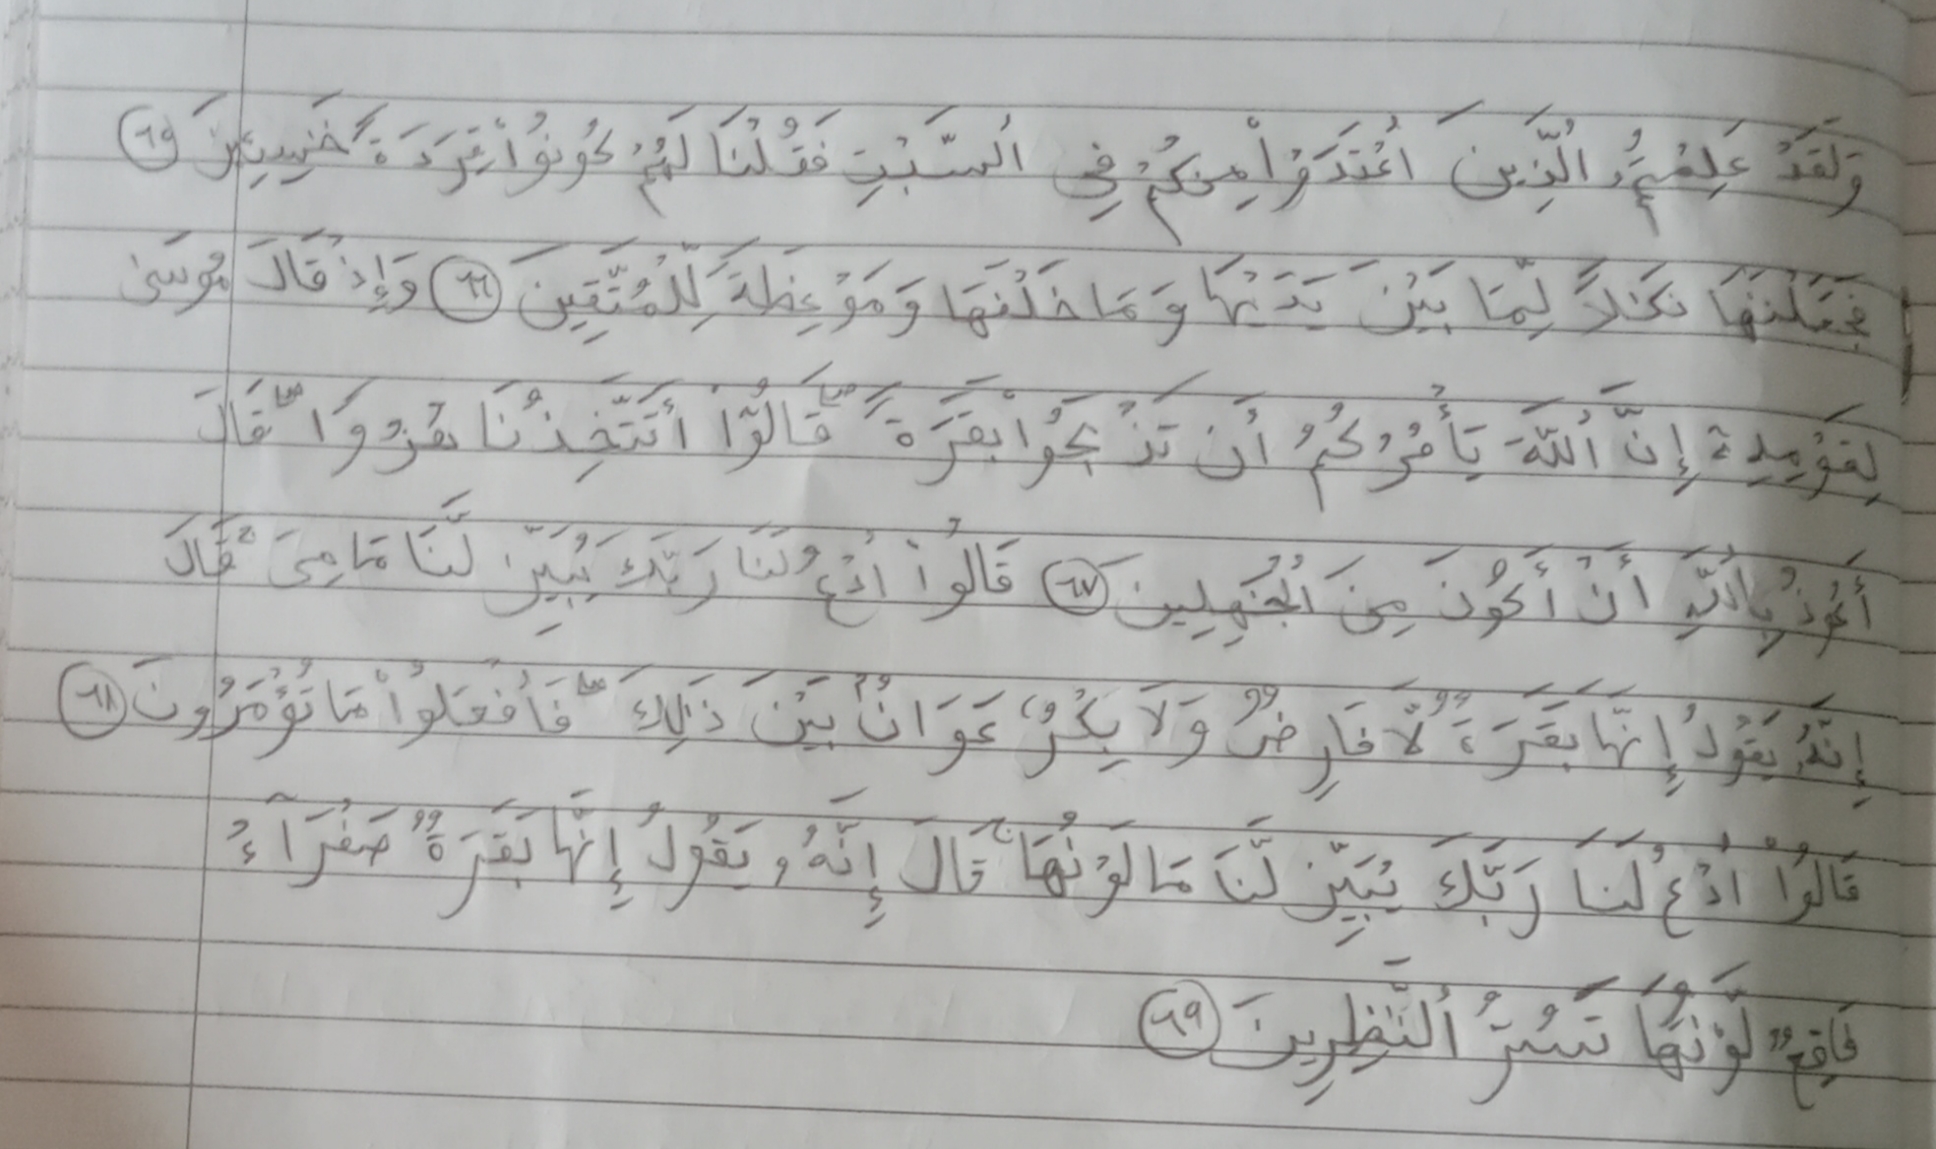 وَلَقَدْ عَلِمْتُمُ الَّذِينَ اعْتَدَوْاْ مِنكُمْ فِي السَّبْتِ فَقُلْنَا لَهُمْ كُونُواْ قِرَدَةً خَٰسِـِٔينَ ٦٥
فَجَعَلْنَٰهَا نَكَٰلًا لِّمَا بَيْنَ يَدَيْهَا وَمَا خَلْفَهَا وَمَوْعِظَةً لِّلْمُتَّقِينَ ٦٦ وَإِذْ قَالَ مُوسَىٰ
لِقَوْمِهِۦٓ إِنَّ اللَّهَ يَأْمُرُكُمْ أَن تَذْبَحُواْ بَقَرَةً ۖ قَالُوٓاْ أَتَتَّخِذُنَا هُزُوًا ۖ قَالَ
أَعُوذُ بِاللَّهِ أَنْ أَكُونَ مِنَ الْجَٰهِلِينَ ٦٧ قَالُواْ ادْعُ لَنَا رَبَّكَ يُبَيِّن لَّنَا مَا هِيَ ۚ قَالَ
إِنَّهُۥ يَقُولُ إِنَّهَا بَقَرَةٌ لَّا فَارِضٌ وَلَا بِكْرٌ عَوَانٌۢ بَيْنَ ذَٰلِكَ ۖ فَافْعَلُواْ مَا تُؤْمَرُونَ ٦٨
قَالُواْ ادْعُ لَنَا رَبَّكَ يُبَيِّن لَّنَا مَا لَوْنُهَا ۚ قَالَ إِنَّهُۥ يَقُولُ إِنَّهَا بَقَرَةٌ صَفْرَآءُ
فَاقِعٌ لَّوْنُهَا تَسُرُّ النَّٰظِرِينَ ٦٩